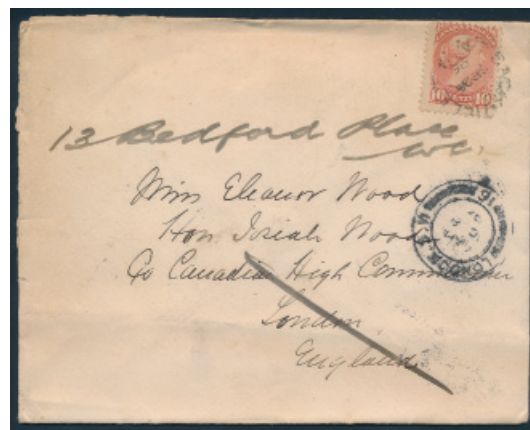 10 CENTS 10
13 Bedford Place
W.C.
Miss Eleanor Wood
Hon. Josiah Wood
C/o Canadian High Commission
London
England
LONDON